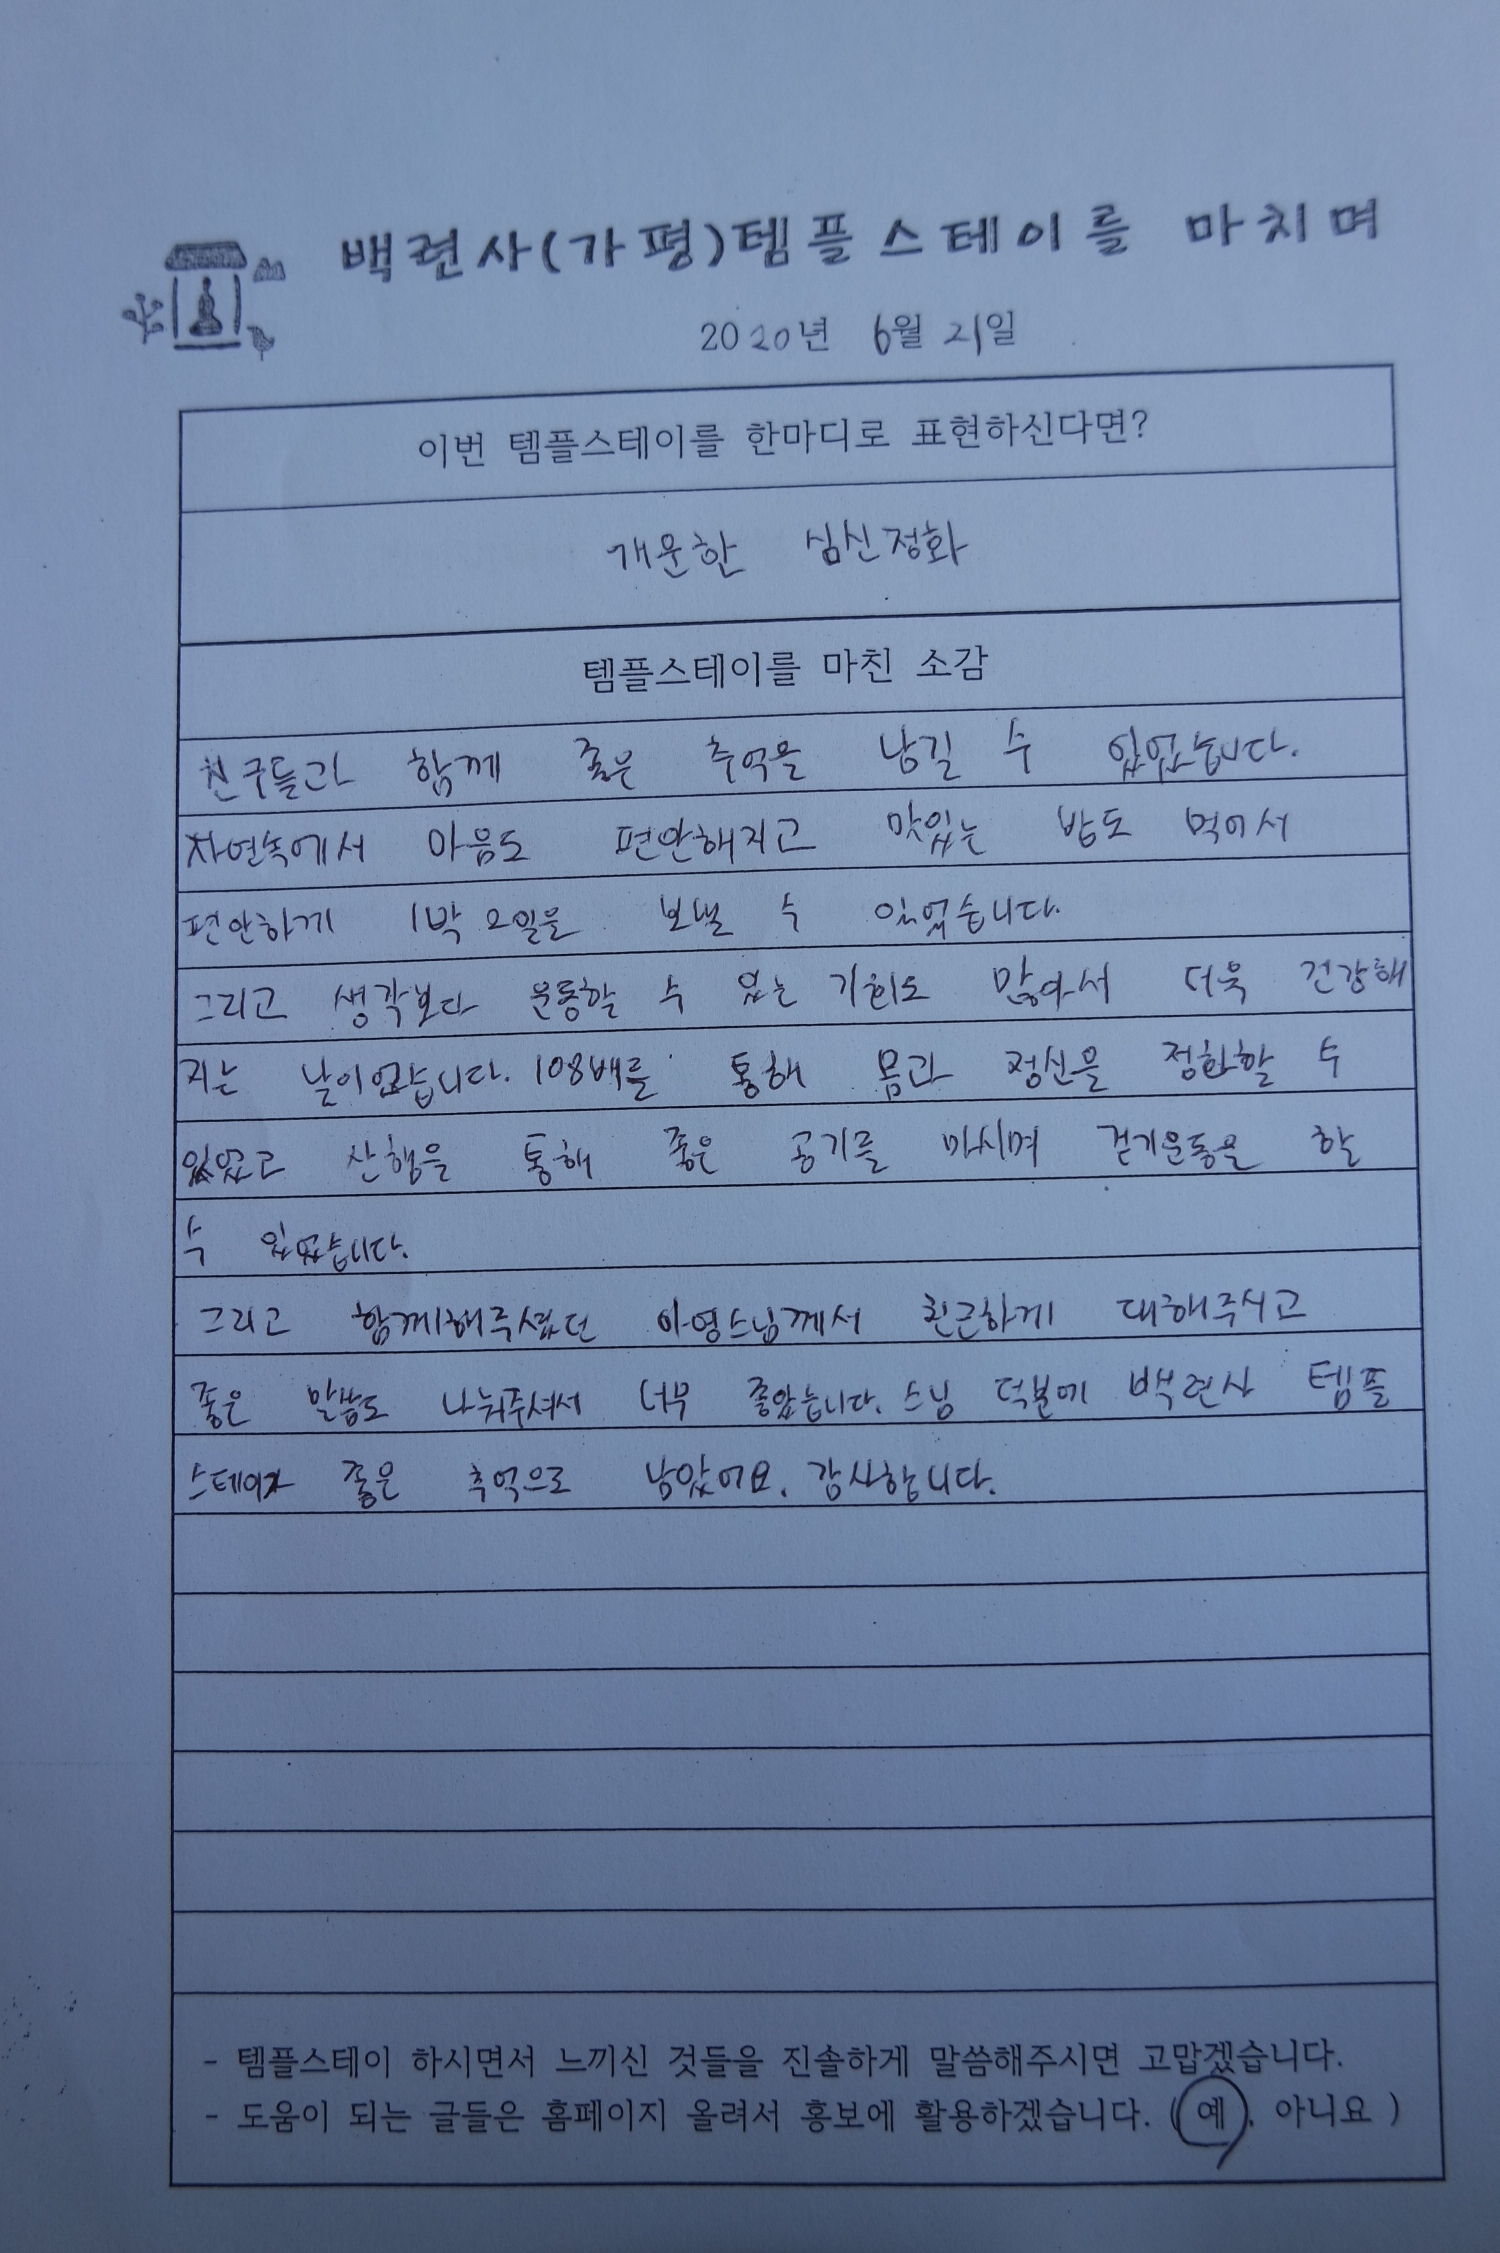 백련사(가평)템플스테이를 마치며
2020년 6월 21일
이번 템플스테이를 한마디로 표현하신다면?
개운한 심신정화
템플스테이를 마친 소감
친구들과 함께 좋은 추억을 남길 수 있었습니다.
자연속에서 마음도 편안해지고 맛있는 밥도 먹어서
편안하게 1박 2일을 보낼 수 있었습니다.
그리고 생각보다 운동할 수 있는 기회도 많아서 더욱 건강해
지는 날이었습니다. 108배를 통해 몸과 정신을 정화할 수
있었고 산행을 통해 좋은 공기를 마시며 걷기운동을 할
수 있었습니다.
그리고 함께해주셨던 아영스님께서 친근하게 대해주시고
좋은 말씀도 나눠주셔서 너무 좋았습니다. 스님 덕분에 백련사 템플
스테이가 좋은 추억으로 남았어요. 감사합니다.
- 템플스테이 하시면서 느끼신 것들을 진솔하게 말씀해주시면 고맙겠습니다.
- 도움이 되는 글들은 홈페이지 올려서 홍보에 활용하겠습니다. ( 예, 아니요 )